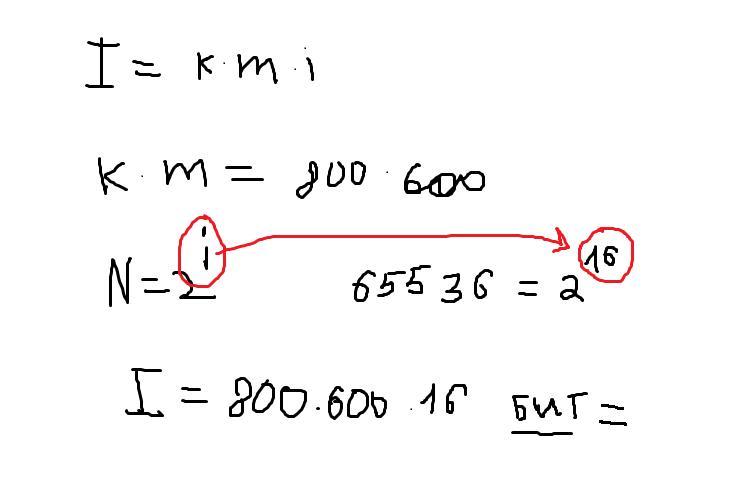 I = к · m · i
к · m = 800 · 600
N = 2^i 65536 = 2^16
I = 800 · 600 · 16 бит =